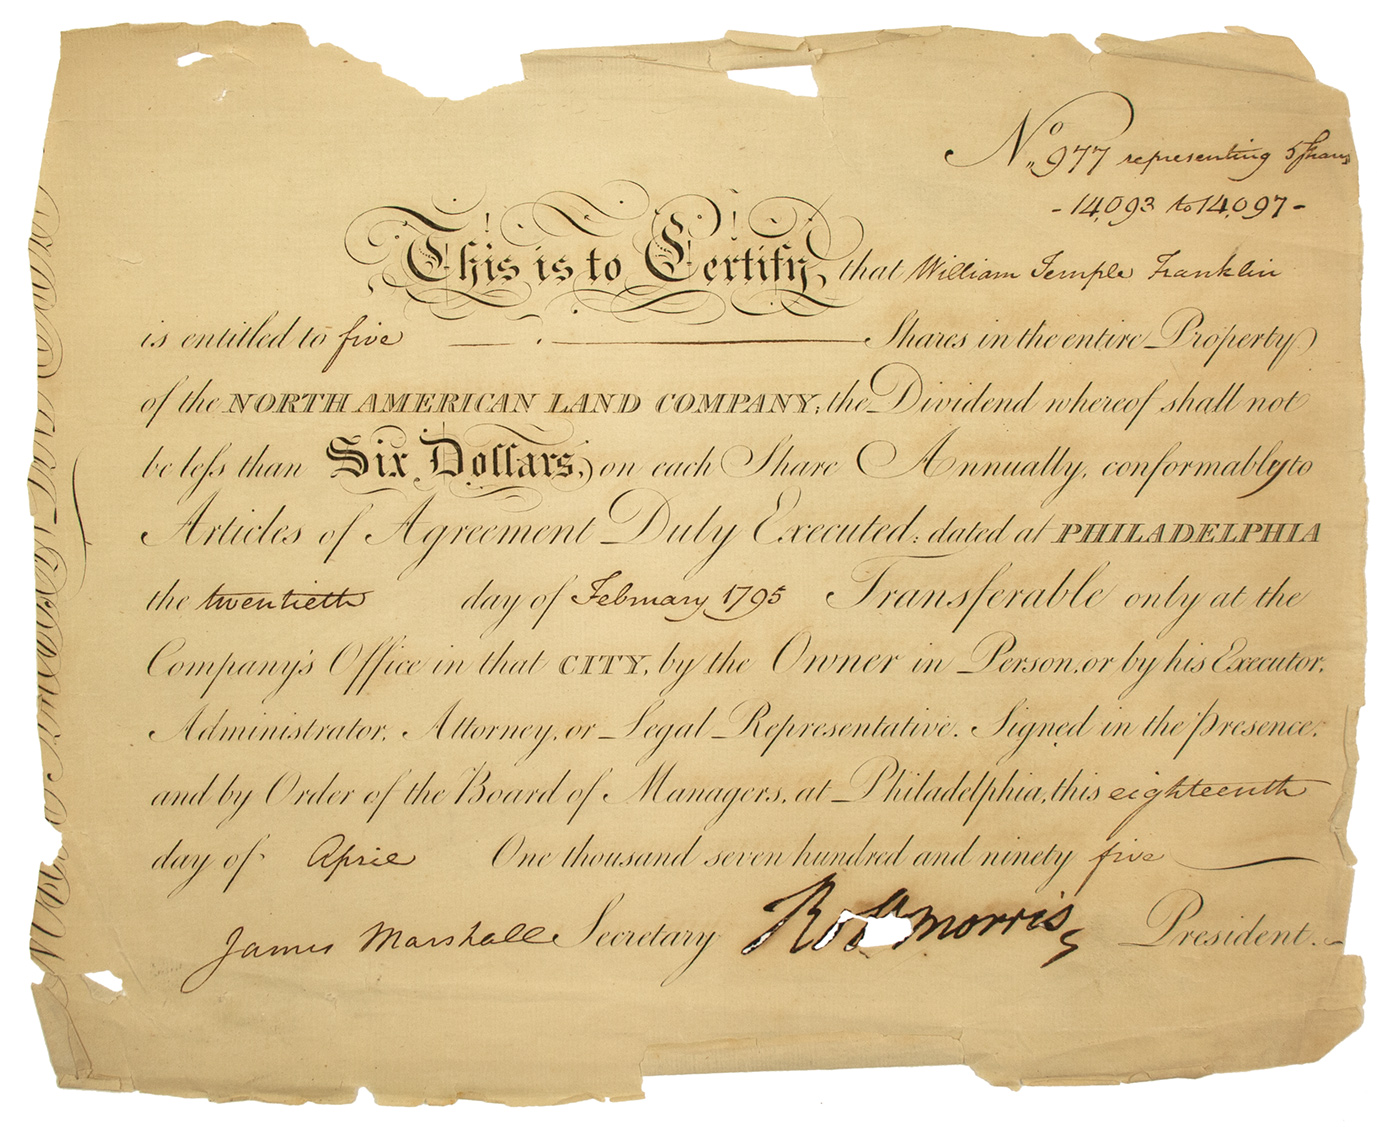 No. 977 representing 5 Shares
- 14,093 to 14,097 -
This is to Certify, that William Temple Franklin
is entitled to five Shares in the entire Property
of the NORTH AMERICAN LAND COMPANY; the Dividend whereof shall not
be leſs than Six Dollars, on each Share Annually, conformably to
Articles of Agreement Duly Executed: dated at PHILADELPHIA
the twentieth day of February 1795 Transferable only at the
Company's Office in that CITY, by the Owner in Person, or by his Executor,
Administrator, Attorney, or Legal Representative. Signed in the presence,
and by Order of the Board of Managers, at Philadelphia, this eighteenth
day of April One thousand seven hundred and ninety five
James Marshall Secretary Robt Morris President.